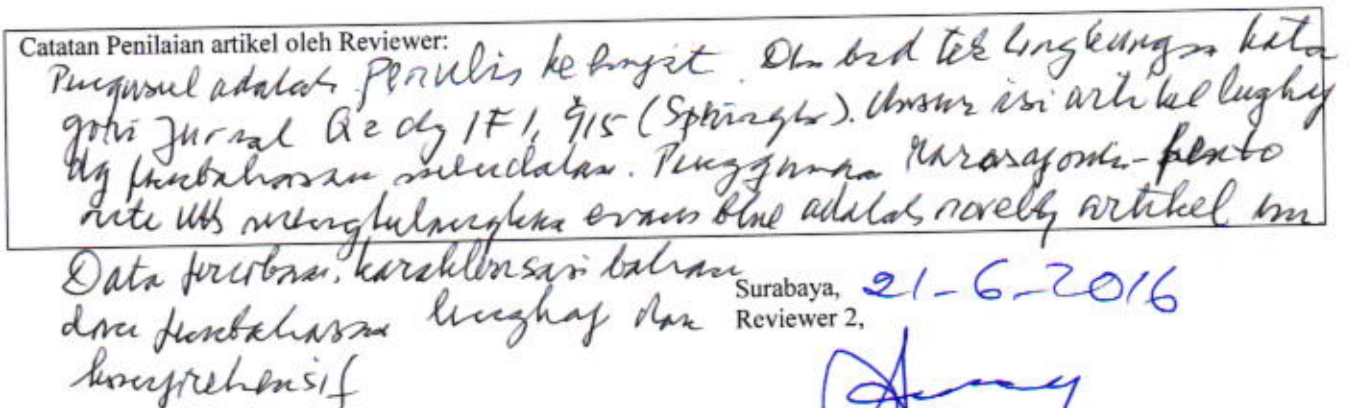 Catatan Penilaian artikel oleh Reviewer:
Pengusul adalah penulis ke empat. Dlm bid tek lingkungan kate
gori Jurnal Q2 dg IF 1, 915 (Springer). Unsur isi artikel lengkap
dg pembahasan mendalam. Penggunaan
utk menghilangkan evans blue adalah novelty artikel ini
Data percobaan, karakterisasi bahan
dan pembahasan lengkap dan
komprehensif
Surabaya, 21-6-2016
Reviewer 2,